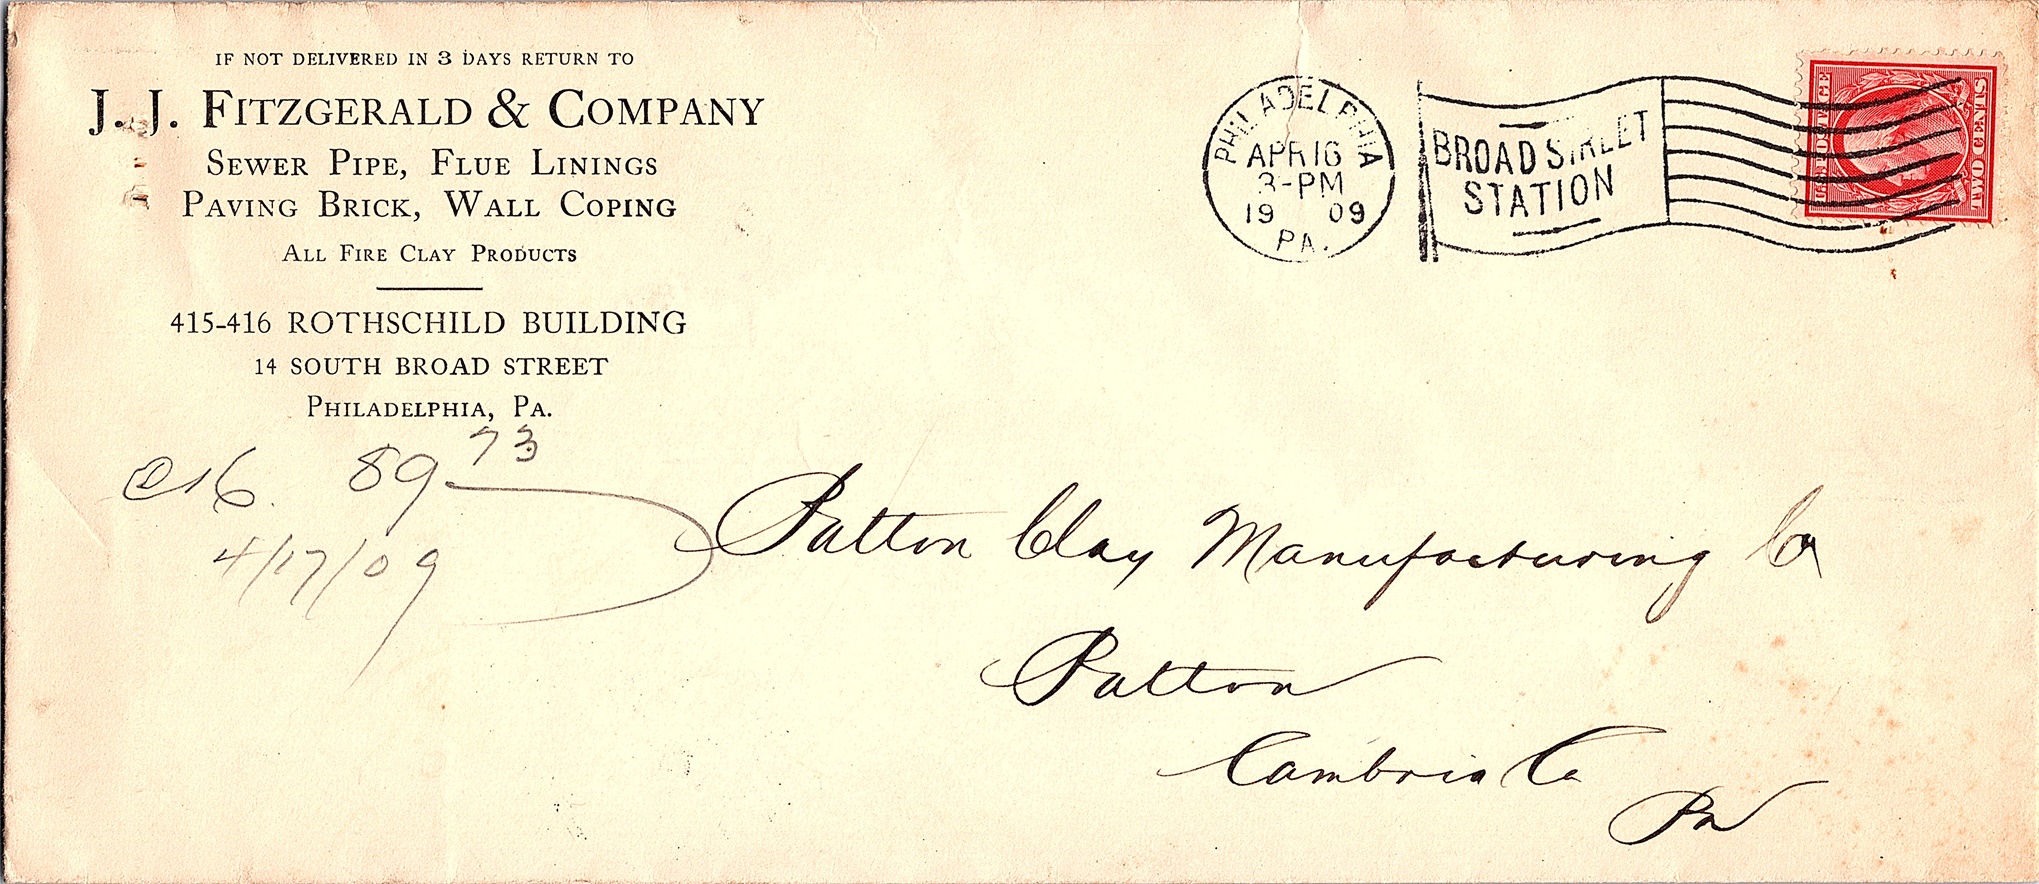 IF NOT DELIVERED IN 3 DAYS RETURN TO
J. J. FITZGERALD & COMPANY
SEWER PIPE, FLUE LININGS
PAVING BRICK, WALL COPING
ALL FIRE CLAY PRODUCTS
415-416 ROTHSCHILD BUILDING
14 SOUTH BROAD STREET
PHILADELPHIA, PA.
PHILADELPHIA
APR 16
3-PM
19 09
PA.
BROAD STREET
STATION
TWO CENTS
89 73
4/17/09
Patton Clay Manufacturing Co
Patton
Cambria Co
Pa